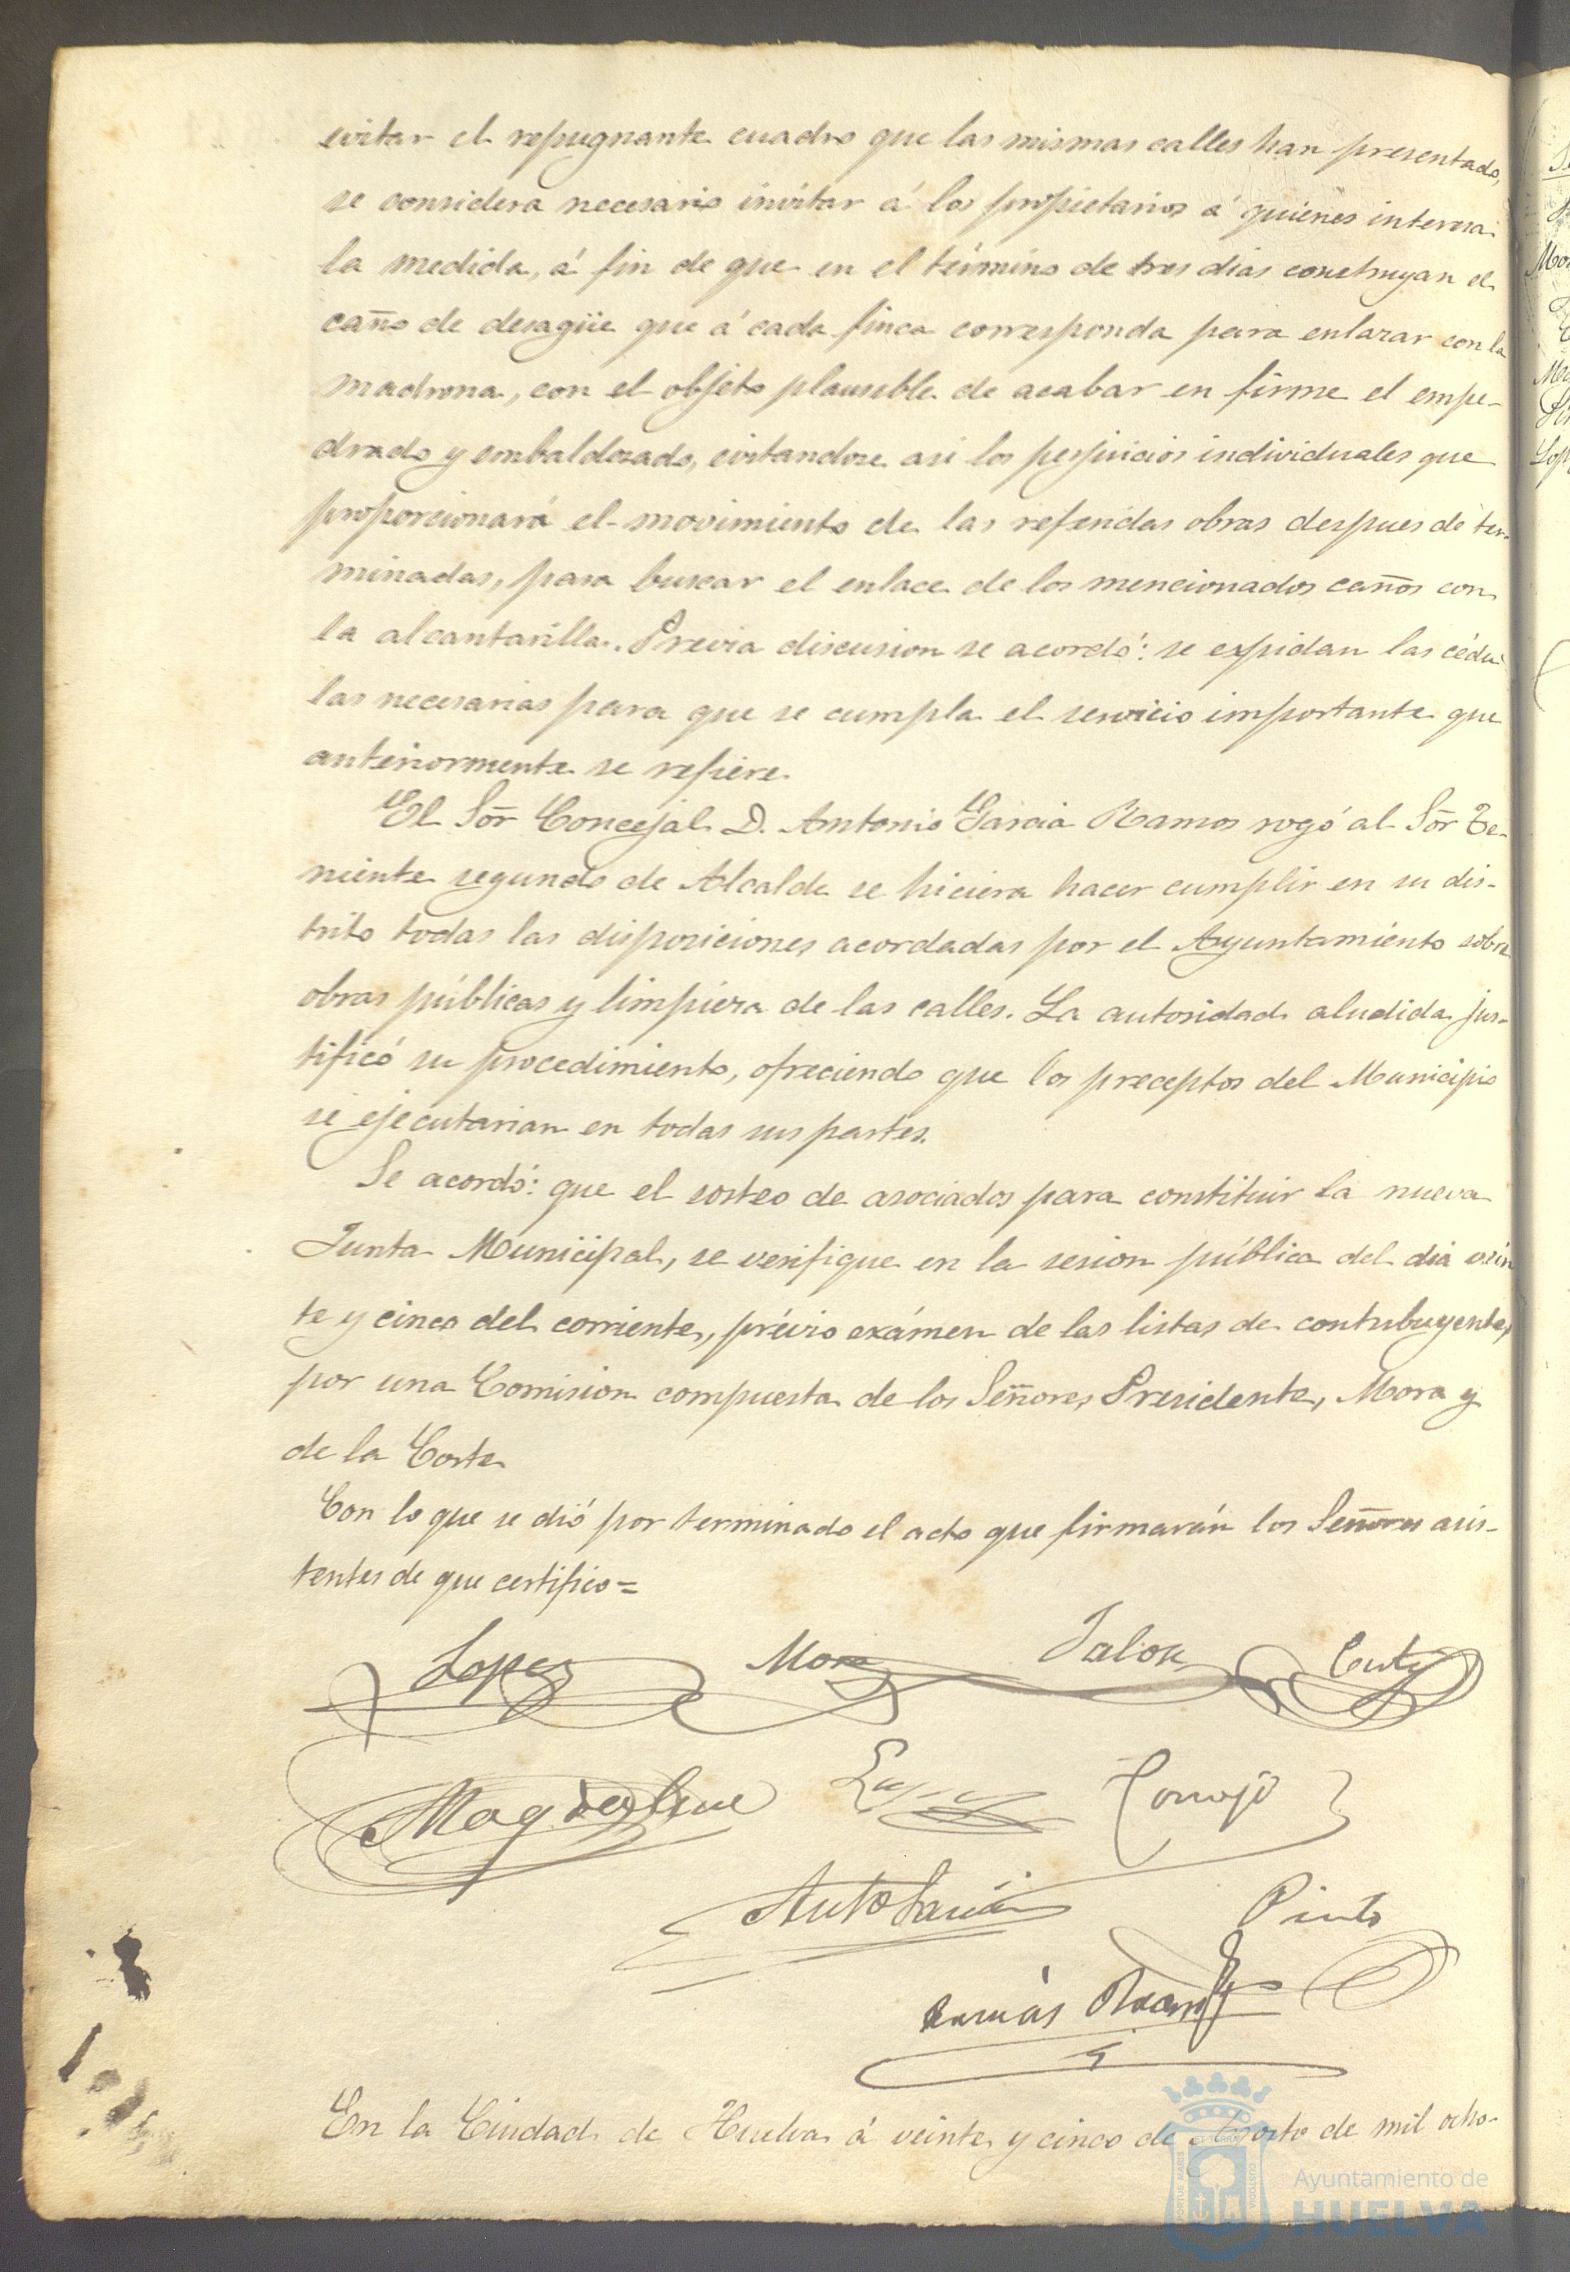 evitar el repugnante cuadro que las mismas calles han presentado,
se considera necesario invitar á los propietarios á quienes interesa
la medida, á fin de que en el término de tres dias construyan el
caño de desagüe que á cada finca corresponda para enlazar con la
madrona, con el objeto plausible de acabar en firme el empe-
drado y embaldosado, evitandose asi los perjuicios individuales que
proporcionará el movimiento de las referidas obras despues de ter-
minadas, para buscar el enlace de los mencionados caños con
la alcantarilla. Previa discusion se acordó: se expidan las cédu-
las necesarias para que se cumpla el servicio importante que
anteriormente se refiere.
El Sor Concejal D. Antonio Garcia Ramos rogó al Sor Te-
niente segundo de Alcalde se hiciera hacer cumplir en su dis-
trito todas las disposiciones acordadas por el Ayuntamiento sobre
obras públicas y limpieza de las calles. La autoridad aludida jus-
tificó su procedimiento, ofreciendo que los preceptos del Municipio
se ejecutarian en todas sus partes.
Se acordó: que el sorteo de asociados para constituir la nueva
Junta Municipal, se verifique en la sesion pública del dia vein
te y cinco del corriente, prévio exámen de las listas de contribuyentes,
por una Comision compuesta de los Señores Presidente, Mora y
de la Corte
Con lo que se dió por terminado el acto que firmarán los Señores asis-
tentes de que certifico=
Lopez Mora Jalon
Cornejo
Anto Garcia Pinto
En la Ciudad de Huelva á veinte y cinco de Agosto de mil ocho-
PORTUS MARIS
CUSTODIA
Ayuntamiento de
HUELVA